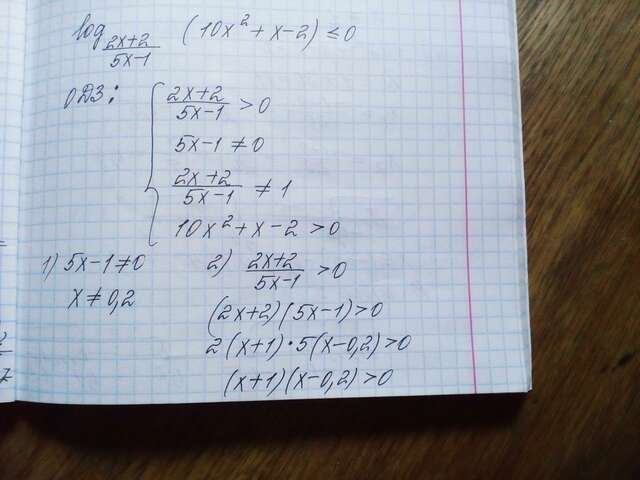 log_{(2x+2)/(5x-1)} (10x² + x - 2) ≤ 0
ОДЗ:
(2x+2)/(5x-1) > 0
5x-1 ≠ 0
(2x+2)/(5x-1) ≠ 1
10x² + x - 2 > 0
1) 5x-1≠0
x≠0,2
2) (2x+2)/(5x-1) > 0
(2x+2)(5x-1)>0
2(x+1)·5(x-0,2)>0
(x+1)(x-0,2)>0
7